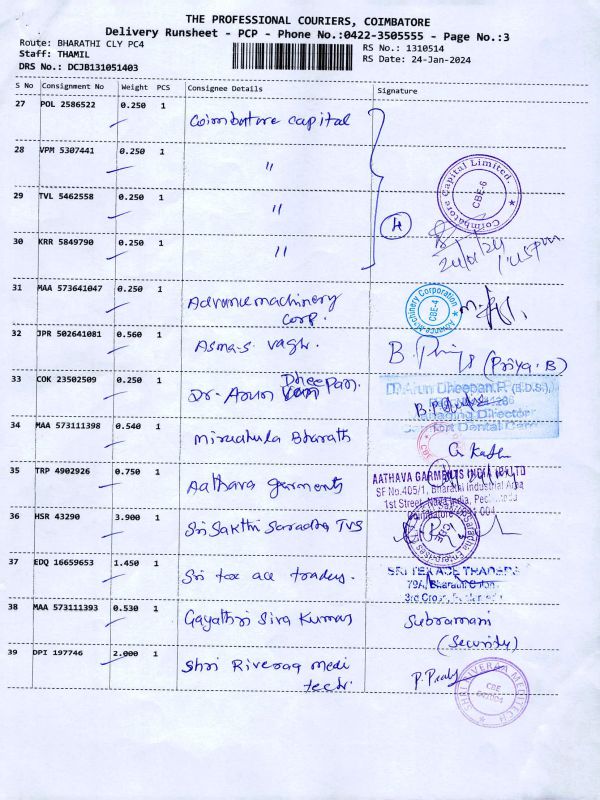 THE PROFESSIONAL COURIERS, COIMBATORE
Delivery Runsheet - PCP - Phone No.:0422-3505555 - Page No.:3
Route: BHARATHI CLY PC4
Staff: THAMIL
DRS No.: DCJB131051403
RS No.: 1310514
RS Date: 24-Jan-2024
S No Consignment No Weight PCS Consignee Details Signature
27 POL 2586522 0.250 1 Coimbatore capital
28 VPM 5307441 0.250 1 "
Coimbatore Capital Limited. CBE-6
29 TVL 5462558 0.250 1 "
4
30 KRR 5849790 0.250 1 "
24/01/24
1.45pm
31 MAA 573641047 0.250 1 Advance machinery
corp.
Advance Machinery Corporation CBE-4
32 JPR 502641081 0.560 1 Asma.s. vagh.
(Priya.B)
33 COK 23502509 0.250 1 Dr. Arun Dheepan.
Dr. Arun Dheeban.P. (B.D.S).,
Managing Director
Dental Care
34 MAA 573111398 0.540 1 Mirudhula Bharath
35 TRP 4902926 0.750 1 Aathava garments
AATHAVA GARMENTS INDIA (P) LTD
SF No.405/1, Bharathi Industrial Area
1st Street, Nava India,
Coimbatore 641 004.
36 HSR 43290 3.900 1 Sri Sakthi Saradha TVS
37 EDQ 16659653 1.450 1 Sri tex ace traders.
SRI TEX ACE TRADERS
79A, Bharathi Colony
3rd Cross,
38 MAA 573111393 0.530 1 Gayathri Siva Kumar
Subramani
(Security)
39 DPI 197746 2.000 1 Shri Riveraa medi
tech.
SHRI RIVERAA MEDITECH CBE